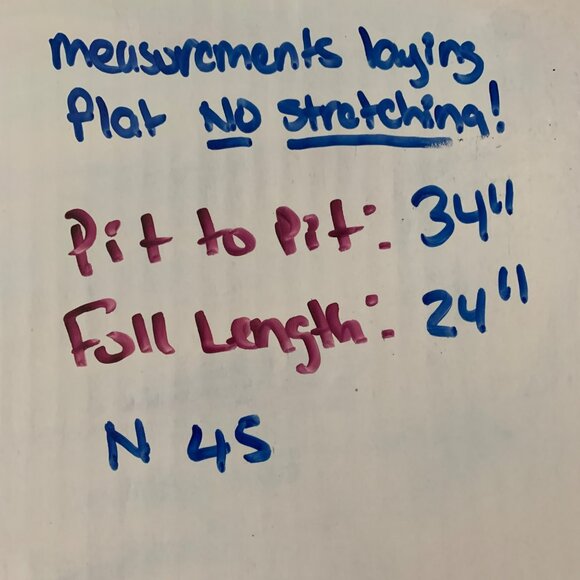 measurements laying
flat NO stretching!
Pit to Pit: 34"
Full Length: 24"
N 45